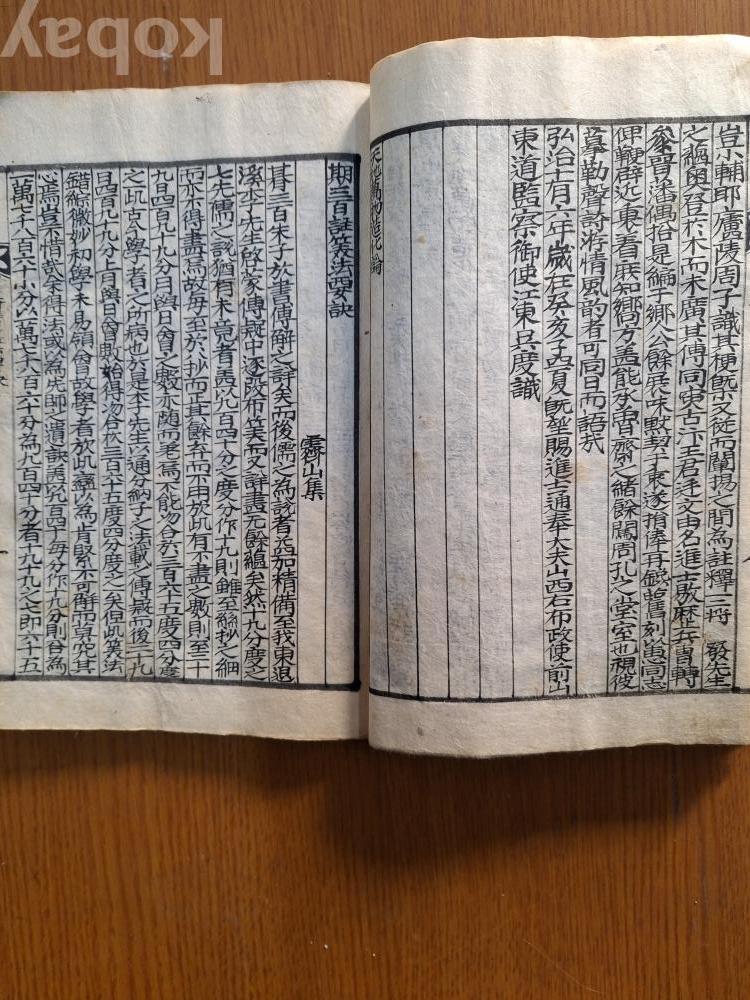 kobay
豈小輔耶廬陵周子識其梗槩又從而闡揚之間為註釋三將 發先生
之蘊奥登於木而未廣其傳同東古汴王君廷文由名進士敭歷兵曹轉
叅晋潘偶拾是編于鄉公餘展味黙契于衷遂捐俸再鋟舊刻溢心同志
俾鞭辟近裏看庶知嚮方盖能承魯齋之緒餘闚周孔之堂室也視彼
葺勒聲詩將情風韵者可同日而語㢤
弘治十有六年歲在癸亥孟夏旣望賜進士通奉大夫山西右布政使前山
東道監察御使江東兵度識
天地萬物造化論
期三百註筭法要訣
霽山集
朞三百朱子於書傳解之詳矣而後儒之為說者益加精備至我東退
溪李先生啓蒙傳疑中逐段布筭而又詳盡无餘蘊矣然十九分度之
七先儒之說猶有未竟者盖九百四十分之度分作十九則雖至絲抄之細
而亦不得盡焉故每至於抄而止其餘弃而不用於此有不盡之數則至二十
九日四百九十九分日與日會之數亦隨而差焉不能沕合於三百六十五度四分度
之此古今學者之所病也於是李先生以通分納子之法載之傳疑而後二十九
日四百九十九分日與日會數始得沕合於三百六十五度四分度之一矣但此筭法
錯綜微妙初學未易領會故學者於此蓋以為肯綮不可觧而莫究其
心焉豈不惜㢤余得法或以為先師之遺訣盖九百四十每分作十九分則合為
一萬七千八百六十小分以一萬七千八百六十分為九百四十分者十九十九之七即六千五